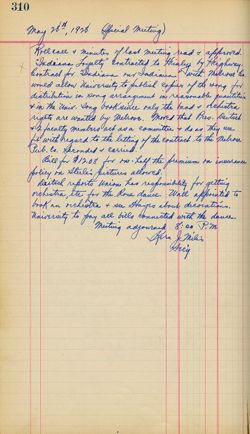 310
May 25th, 1926 (Special Meeting)
Roll call & minutes of last meeting read & approved.
"Indiana Loyalty" contracted to Hinkley by Highway.
Contract for "Indiana our Indiana" with Melrose Co.
would allow University to publish copies of the song for
distribution in song arrangement in reasonable quantities
& in the Univ. Song book since only the band & orchestra
rights are wanted by Melrose. Moved that Pres.
& 2 faculty members act as a committee & do as they see
fit with regard to the letting of the contract to the Melrose
Pub. Co. Seconded & carried.
Bill for $12.08 for one-half the premium on insurance
policy on pictures allowed.
reports Union has responsibility for getting
orchestra, etc. for the Rose dance. Wall appointed to
book an orchestra & see about decorations.
University to pay all bills connected with the dance.
Meeting adjourned 8:00 P.M.
J. Miles
Sec'y